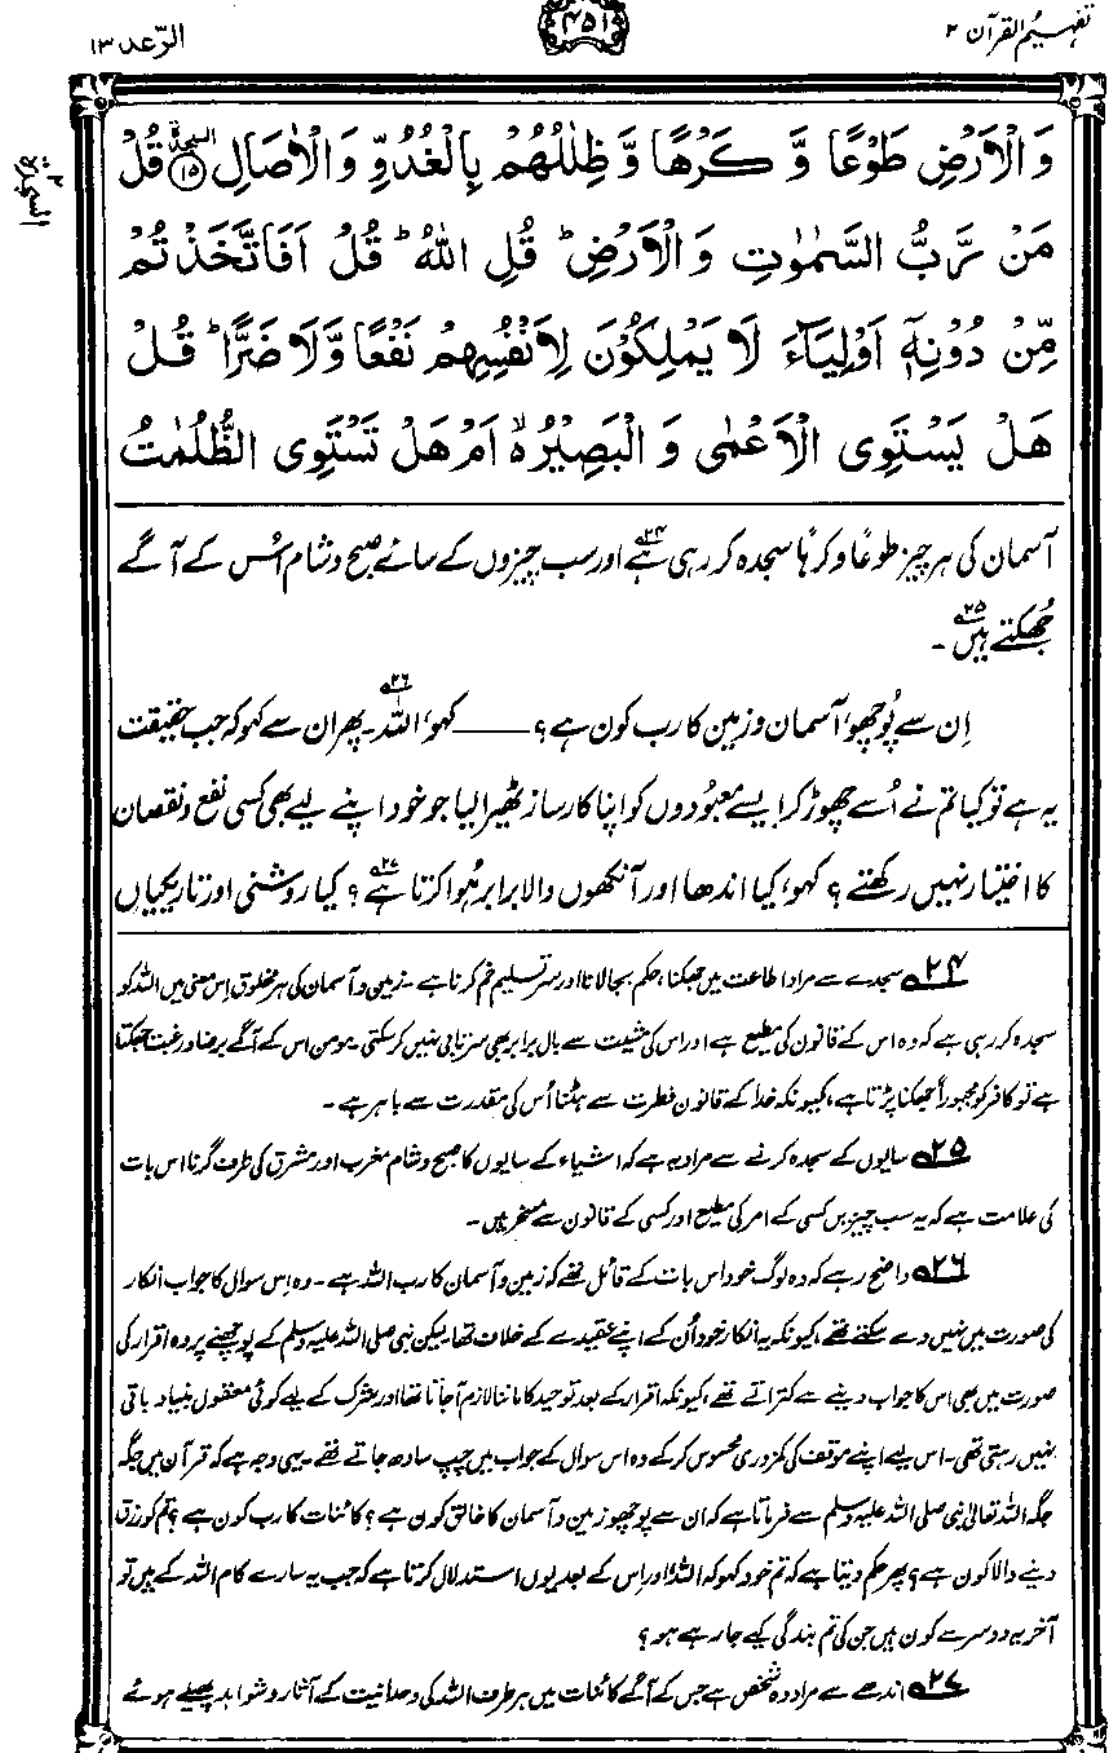 تفہیمُ القرآن ۲
۴۵۱
الرّعد ۱۳
وَالْاَرْضِ طَوْعًا وَّ كَرْهًا وَّ ظِلٰلُهُمْ بِالْغُدُوِّ وَالْاٰصَالِ ۝۱۵ السجدۃ قُلْ
السجدۃ ۲
مَنْ رَّبُّ السَّمٰوٰتِ وَ الْاَرْضِ ؕ قُلِ اللّٰهُ ؕ قُلْ اَفَاتَّخَذْتُمْ
مِّنْ دُوْنِهٖۤ اَوْلِيَآءَ لَا يَمْلِكُوْنَ لِاَنْفُسِهِمْ نَفْعًا وَّلَا ضَرًّا ؕ قُلْ
هَلْ يَسْتَوِى الْاَعْمٰى وَ الْبَصِيْرُ ۙ اَمْ هَلْ تَسْتَوِى الظُّلُمٰتُ
آسمان کی ہر چیز طوعًا و کرہًا سجدہ کر رہی ہے۲۴ اور سب چیزوں کے سائے صبح و شام اُس کے آگے
جُھکتے ہیں۲۵۔
اِن سے پُوچھو، آسمان و زمین کا رب کون ہے؟ ـــــ کہو، اللہ۲۶۔ پھر ان سے کہو کہ جب حقیقت
یہ ہے تو کیا تم نے اُسے چھوڑ کر ایسے معبُودوں کو اپنا کارساز ٹھیرا لیا جو خود اپنے لیے بھی کسی نفع و نقصان
کا اختیار نہیں رکھتے؟ کہو، کیا اندھا اور آنکھوں والا برابر ہُوا کرتا ہے۲۷؟ کیا روشنی اور تاریکیاں
۲۴ سجدے سے مراد اطاعت میں جھکنا، حکم بجالانا اور سرِ تسلیم خم کرنا ہے۔ زمین و آسمان کی ہر مخلوق اِس معنی میں اللہ کو
سجدہ کر رہی ہے کہ وہ اس کے قانون کی مطیع ہے اور اس کی مشیت سے بال برابر بھی سرتابی نہیں کر سکتی۔ مومن اس کے آگے برضا و رغبت جھکتا
ہے تو کافر کو مجبوراً جھکنا پڑتا ہے، کیونکہ خدا کے قانونِ فطرت سے ہٹنا اُس کی مقدرت سے باہر ہے۔
۲۵ سایوں کے سجدہ کرنے سے مراد یہ ہے کہ اشیاء کے سایوں کا صبح و شام مغرب اور مشرق کی طرف گرنا اس بات
کی علامت ہے کہ یہ سب چیزیں کسی کے امر کی مطیع اور کسی کے قانون سے مسخر ہیں۔
۲۶ واضح رہے کہ وہ لوگ خود اس بات کے قائل تھے کہ زمین و آسمان کا رب اللہ ہے۔ وہ اِس سوال کا جواب انکار
کی صورت میں نہیں دے سکتے تھے، کیونکہ یہ انکار خود اُن کے اپنے عقیدے کے خلاف تھا۔ لیکن نبی صلی اللہ علیہ وسلم کے پوچھنے پر وہ اقرار کی
صورت میں بھی اس کا جواب دینے سے کتراتے تھے، کیونکہ اقرار کے بعد توحید کا ماننا لازم آجاتا تھا اور شرک کے لیے کوئی معقول بنیاد باقی
نہیں رہتی تھی۔ اس لیے اپنے موقف کی کمزوری محسوس کر کے وہ اس سوال کے جواب میں چپ سادھ جاتے تھے۔ یہی وجہ ہے کہ قرآن میں جگہ
جگہ اللہ تعالیٰ نبی صلی اللہ علیہ وسلم سے فرماتا ہے کہ ان سے پوچھو زمین و آسمان کا خالق کون ہے؟ کائنات کا رب کون ہے؟ تم کو رزق
دینے والا کون ہے؟ پھر حکم دیتا ہے کہ تم خود کہو کہ اللہ، اور اِس کے بعد یوں استدلال کرتا ہے کہ جب یہ سارے کام اللہ کے ہیں تو
آخر یہ دوسرے کون ہیں جن کی تم بندگی کیے جا رہے ہو؟
۲۷ اندھے سے مراد وہ شخص ہے جس کے آگے کائنات میں ہر طرف اللہ کی وحدانیت کے آثار و شواہد پھیلے ہوئے